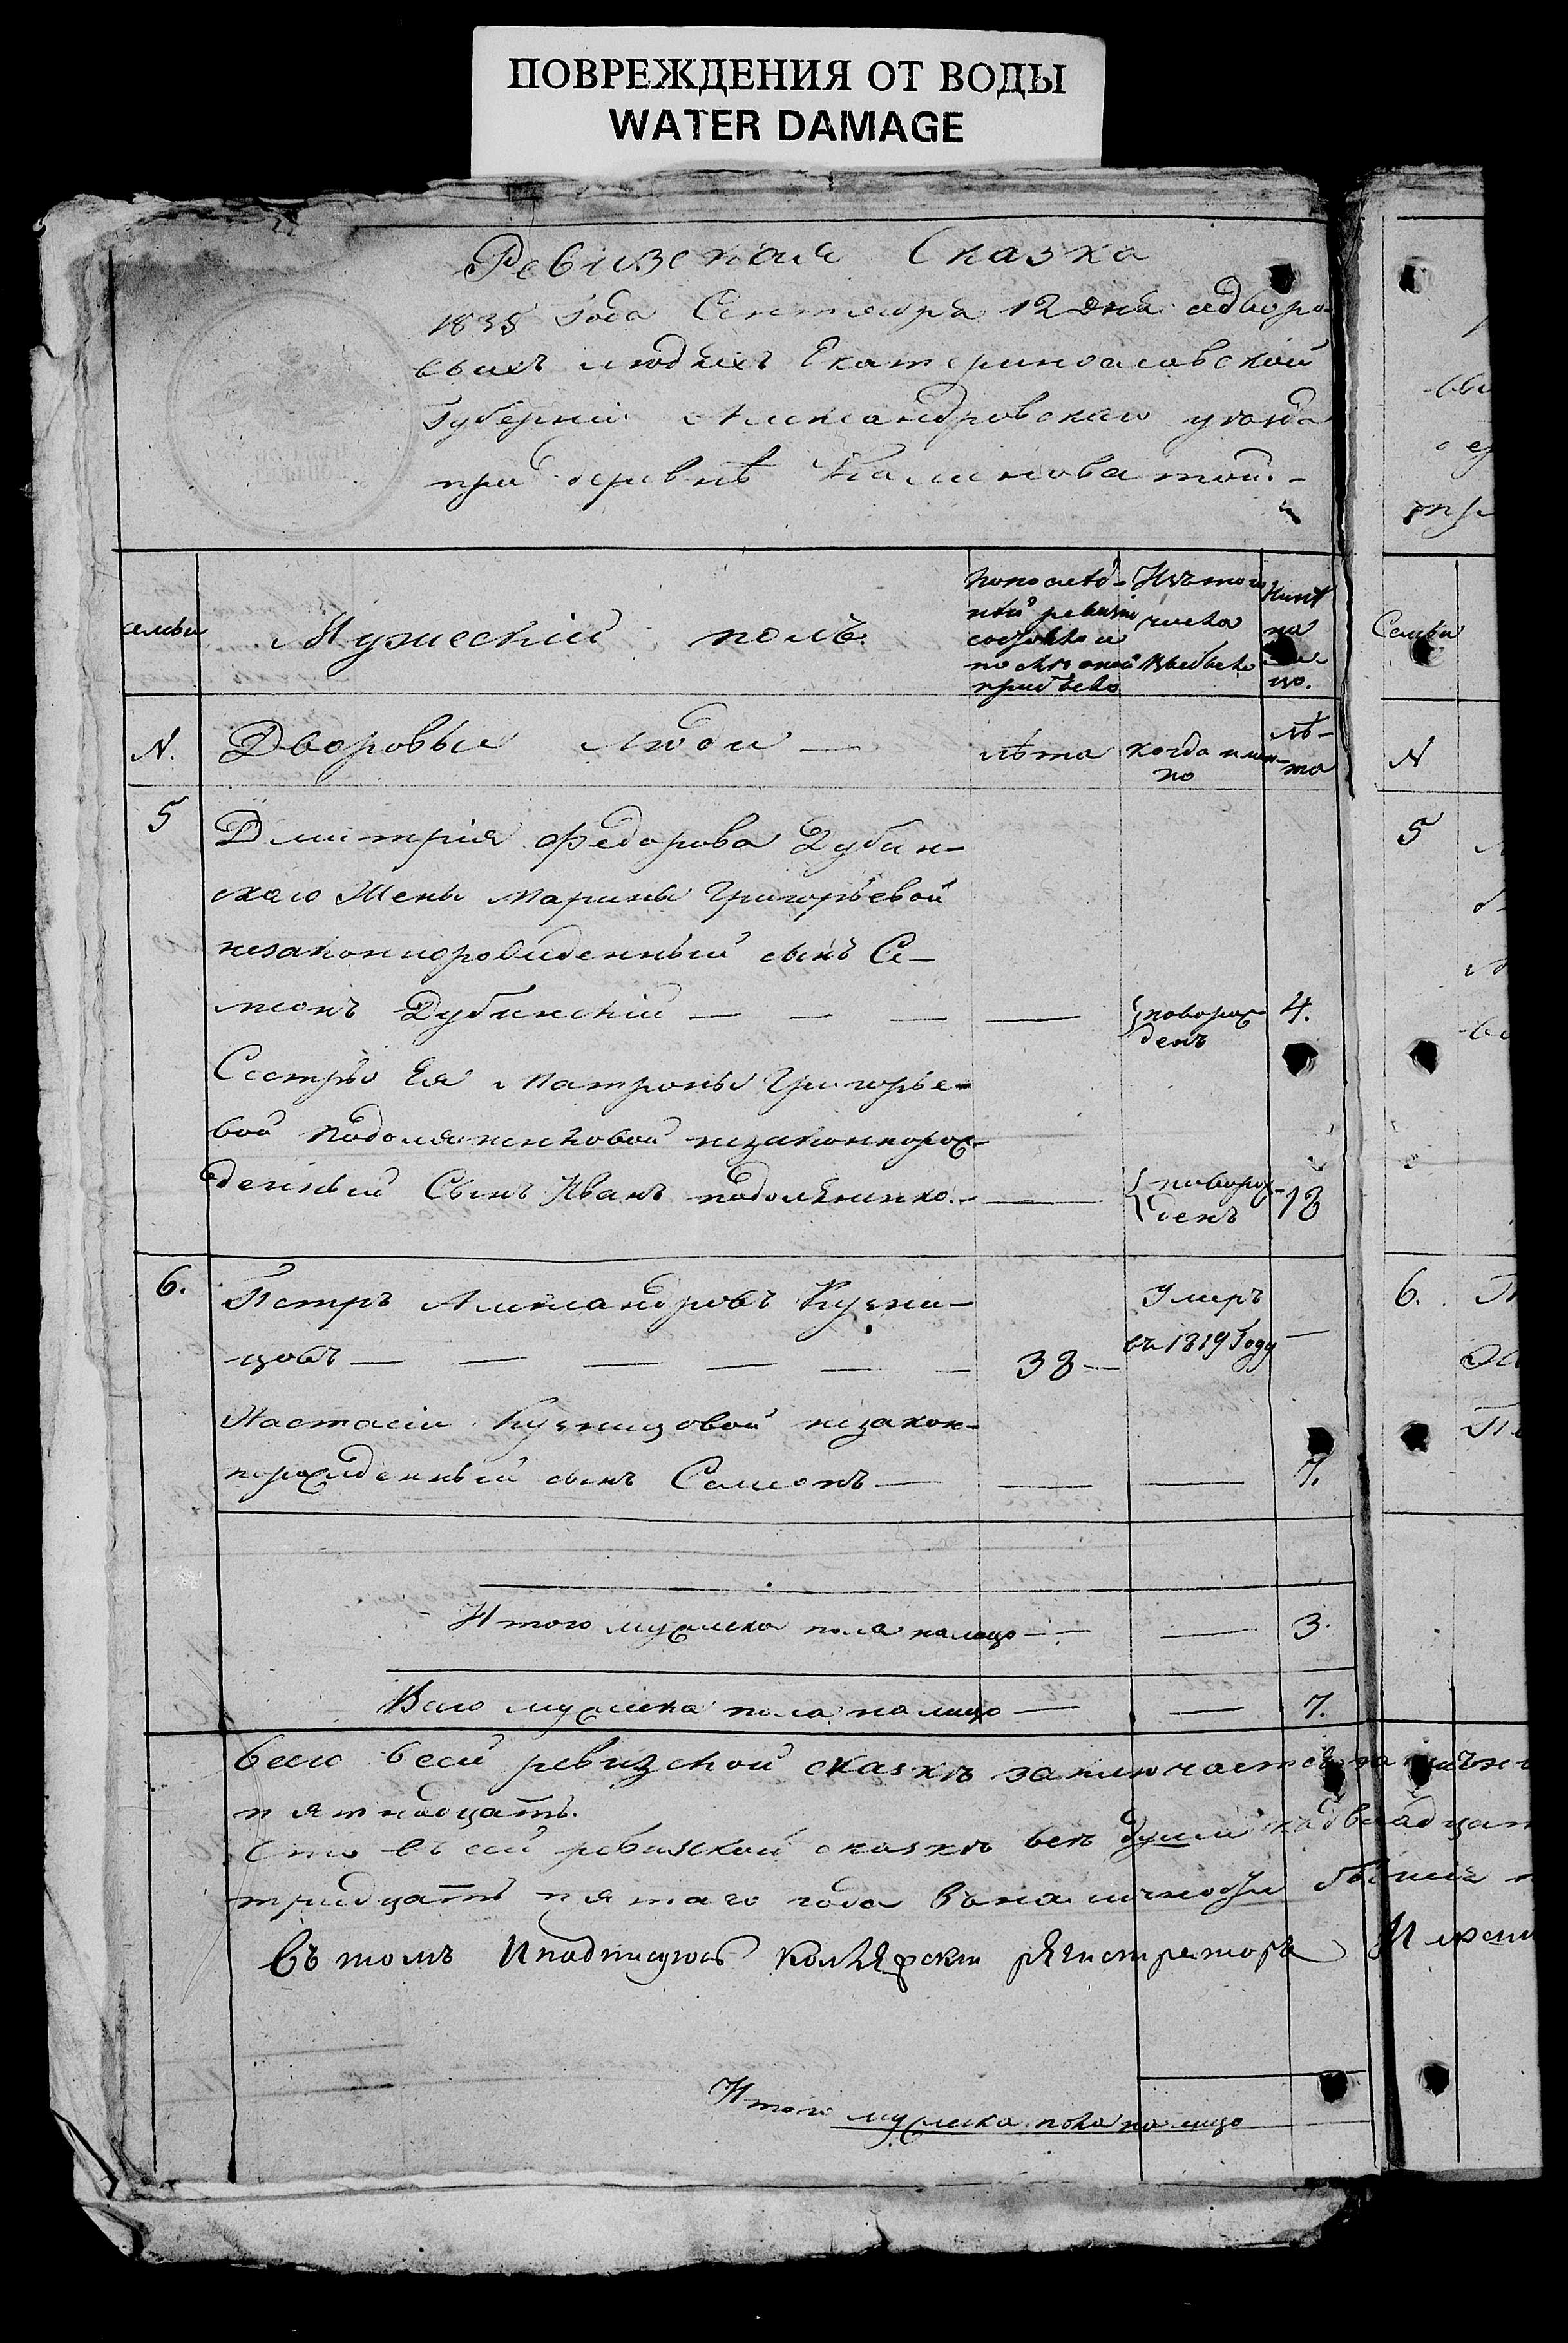 ПОВРЕЖДЕНИЯ ОТ ВОДЫ
WATER DAMAGE
Ревизская Сказка
1835 года Сентября 12 дня одворо-
выхъ людяхъ Екатеринославской
Губерніи Александровскаго уѣзда
при деревнѣ Калиноватой.-
семьи Мужескій полъ. Попослѣд-ней ревизіи состояло и послѣ оной прибыло Изътого числа выбыло Нынѣ на лицо.
N. Дворовые Люди — лѣта когда именно лѣ-та
5 Дмитрія Федорова Дубин-
скаго Жены Марины Григорьевой
незаконнорожденный сынъ Се-
меонъ Дубинскій — — — — новорож
денъ 4.
Сестры Ея Матроны Григорье-
вой Подоляненковой незаконнорож-
денный Сынъ Иванъ подоляненко.- — новорож-
денъ 13
6. Петръ Александровъ Куяни-
цовъ — — — — — — 38 — Умеръ
въ 1819 Году —
Настасіи Куяницовой незакон-
норожденный сынъ Семеонъ — — — 7.
Итого мужеска пола налицо — — 3.
Всего мужеска пола налицо — — 7.
Всего всей ревизской сказкѣ заключается
пятнадцать.
Что въ сей ревизской сказкѣ всѣ души
тридцать пятаго года въ наличности бывшія
Въ томъ Иподписуюсь Колѣжски рѣгистраторъ
Итого мужеска пола на лицо
Семьи
N
5
6.